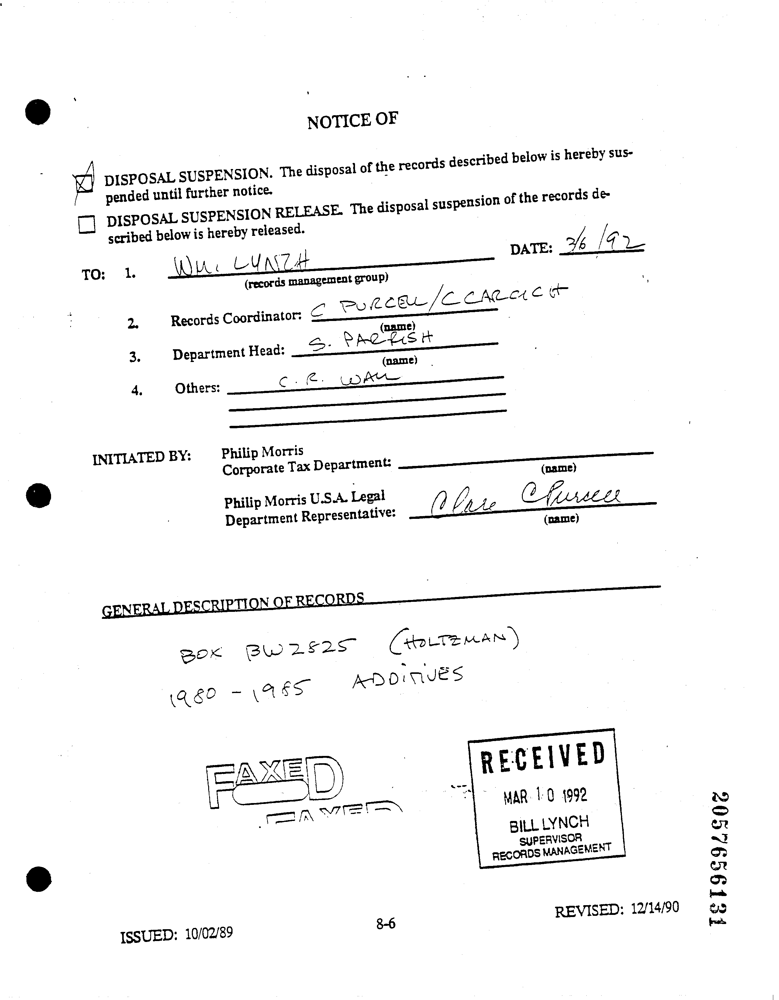 NOTICE OF
DISPOSAL SUSPENSION. The disposal of the records described below is hereby sus-
pended until further notice.
DISPOSAL SUSPENSION RELEASE. The disposal suspension of the records de-
scribed below is hereby released.
DATE: 3/6/92
TO: 1. WM. LYNCH
(records management group)
2. Records Coordinator: C PURCELL/C
(name)
3. Department Head: S. PARRISH
(name)
4. Others: C. R. WALL
INITIATED BY: Philip Morris
Corporate Tax Department:
(name)
Philip Morris U.S.A. Legal
Department Representative: Clare C Purcell
(name)
GENERAL DESCRIPTION OF RECORDS
BOX BW2825 (HOLTZMAN)
1980 - 1985 ADDITIVES
FAXED
FAXED
RECEIVED
MAR 10 1992
BILL LYNCH
SUPERVISOR
RECORDS MANAGEMENT
2057656131
ISSUED: 10/02/89
8-6
REVISED: 12/14/90